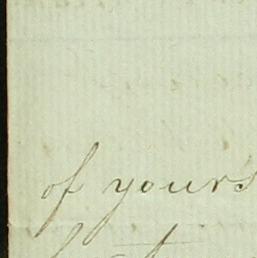 of yours